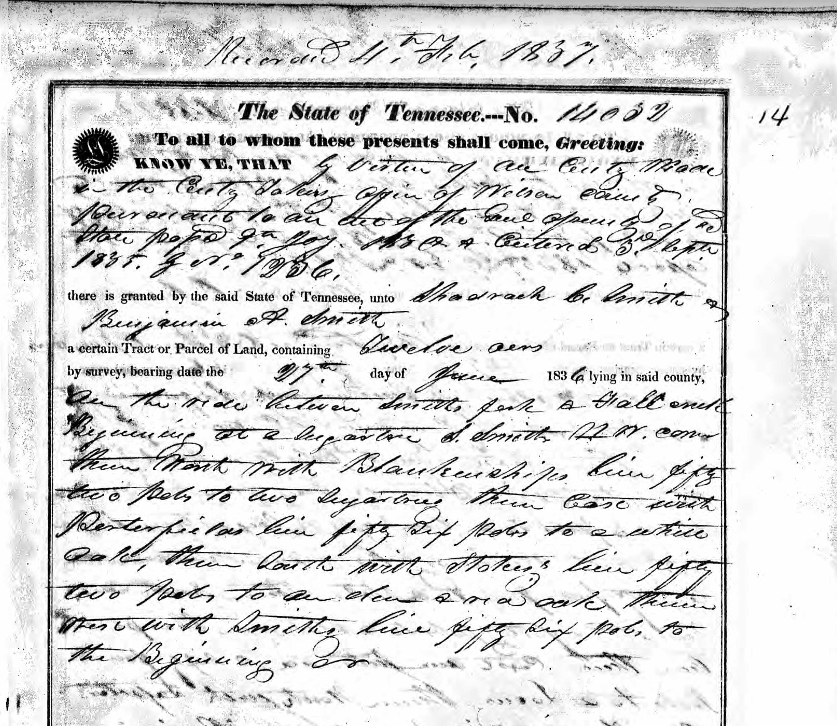 Recorded 4th Feb. 1837.
The State of Tennessee.---No. 14032
14
To all to whom these presents shall come, Greeting:
KNOW YE, THAT By Virtue of an Entry Made
in the Entry Takers office of Wilson County
Pursuant to an act of the of sd
State passd 9th Jay. 1830 & Entered 3rd Septr
1835. by No. 1256.
there is granted by the said State of Tennessee, unto Shadrach C. Smith &
Benjamin A. Smith
a certain Tract or Parcel of Land, containing Twelve acrs
by survey, bearing date the 27th day of June 1836 lying in said county,
on the ridge between Smiths fork & Fall creek
Beginning at a Sugartree S. Smiths N W. corner
thence North with Blankenships line fifty
two poles to two Sugartrees thence East with
Porterfields line fifty Six poles to a white
oak, thence South with Stokes's line fifty
two poles to an elm & red oak thence
West with Smiths line fifty Six poles to
the Beginning
11